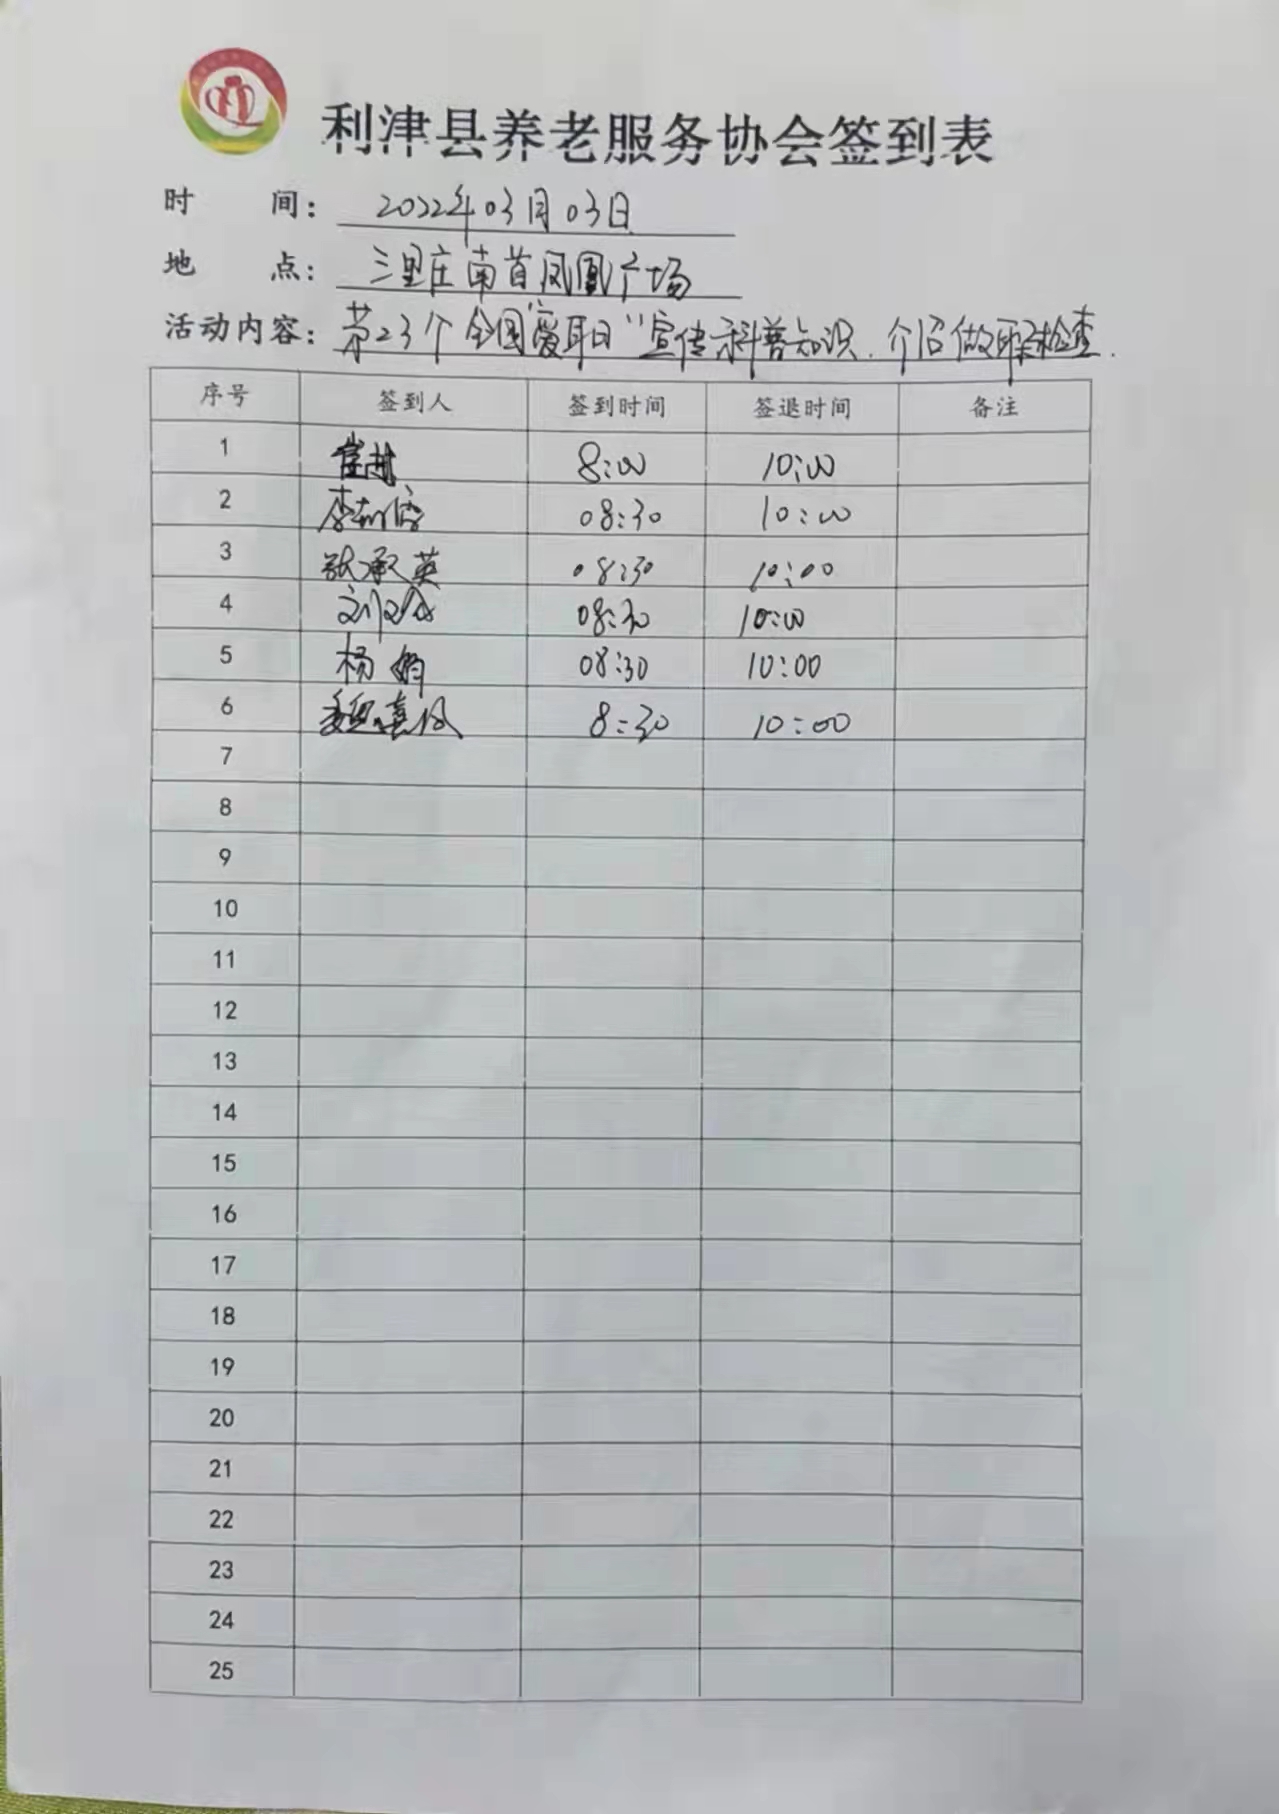 利津县养老服务协会签到表
时 间: 2022年03月03日
地 点: 三里庄南首凤凰广场
活动内容: 第23个全国"爱耳日"宣传科普知识.介绍做耳检查.
序号 签到人 签到时间 签退时间 备注
1 8:00 10:00
2 李 08:30 10:00
3 张承英 08:30 10:00
4 刘 08:30 10:00
5 杨娟 08:30 10:00
6 魏嘉 8:30 10:00
7
8
9
10
11
12
13
14
15
16
17
18
19
20
21
22
23
24
25